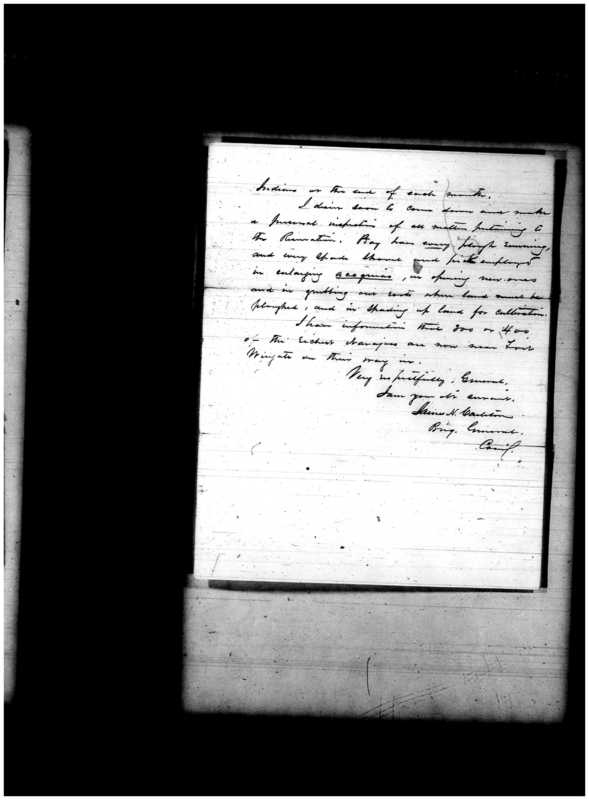 Indians at the end of each month.
I desire soon to come down and make
a personal inspection of all matters pertaining to
the Reservation. Pray have every plough running,
and every spade shovel and pick employed
in enlarging acequias, in opening new ones
and in grubbing out roots where land must be
ploughed, and in spading up land for cultivation.
I have information that 300 or 400
of the richest Navajoes are now near Fort
Wingate on their way in.
Very respectfully, General,
I am your obt servant.
James H. Carleton
Brig. General,
Com'g.